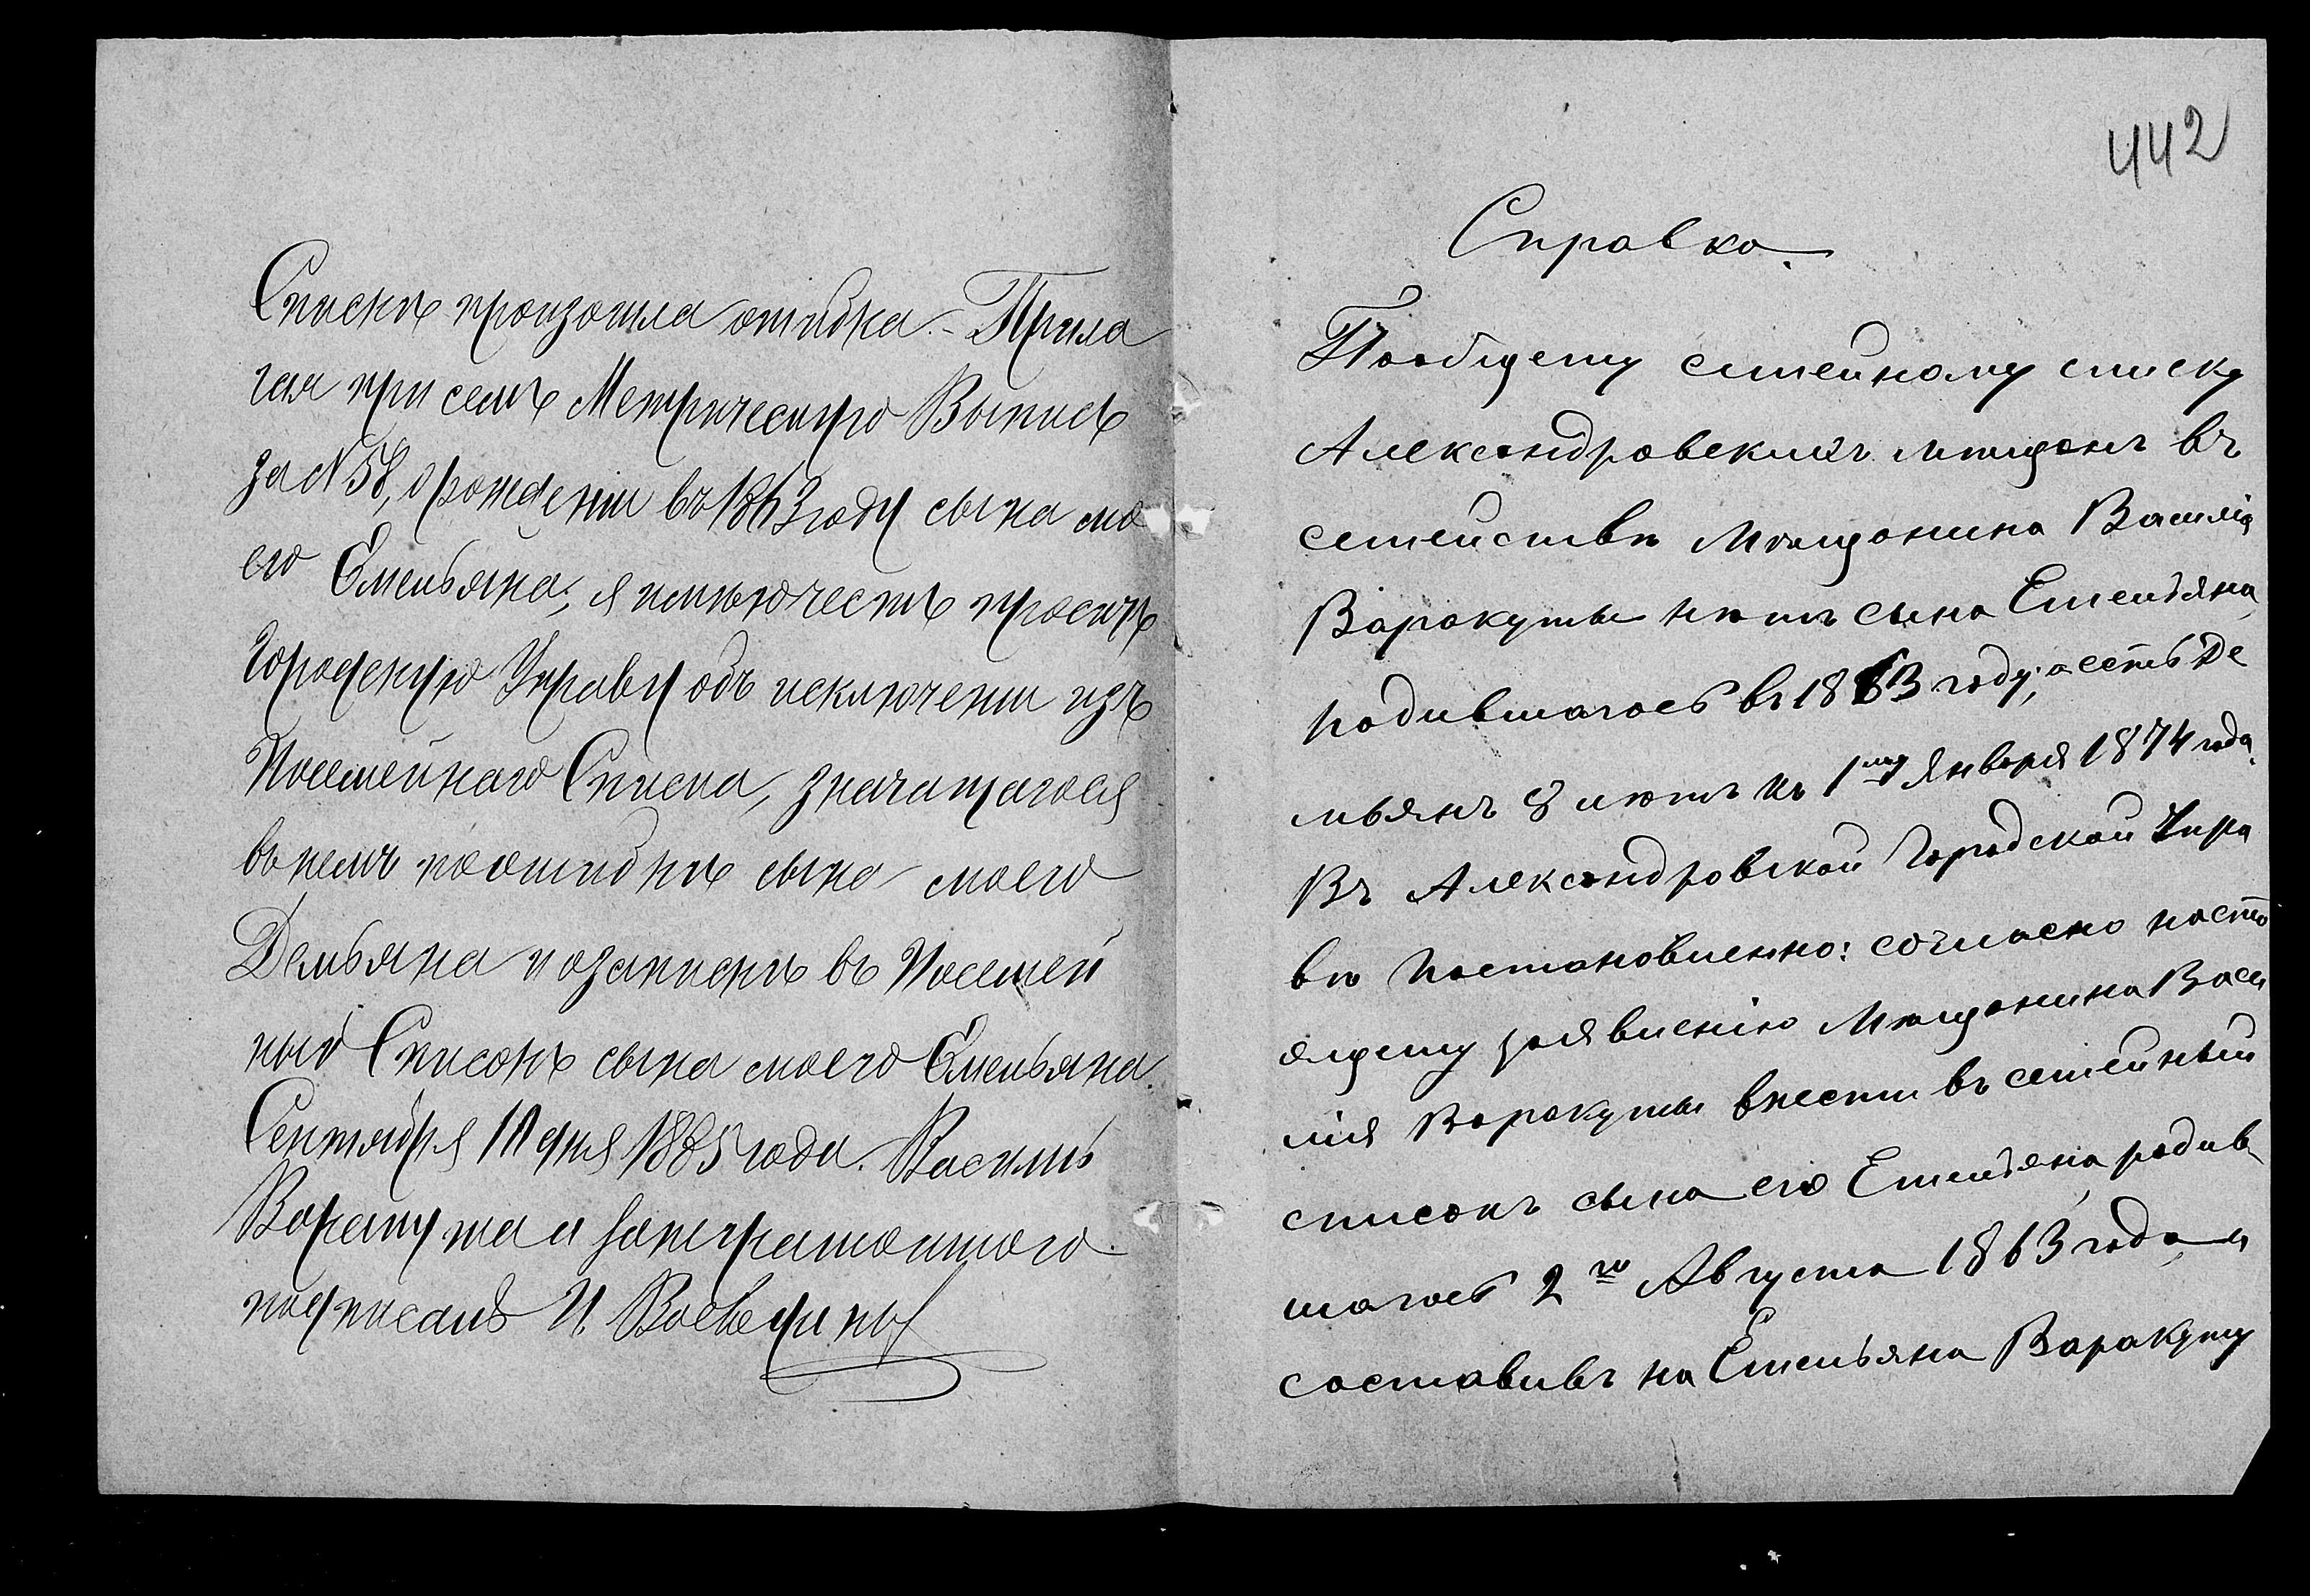 Спискѣ произошла ошибка. - Прила
гая при семъ Метрическую Выпись
за №58, о рожденіи въ 1863 году сына мо
его Емельяна; я имѣю честь просить
Городскую Управу объ исключеніи изъ
Посемейнаго Списка, значащагося
въ немъ по ошибкѣ сына моего
Демьяна и о запискѣ въ Посемей
ный Списокъ сына моего Емельяна.
Сентября дня 1885 года. Василь
Варакута а за неграмотного
подписалъ И.
442
Справка.
По общему семейному списку
Александровскихъ мѣщанъ въ
семействѣ мѣщанина Василія
Варакуты нѣтъ сына Емельяна,
родившагося въ 1863 году, а есть Де
мьянъ 8 лѣтъ къ 1му Января 1874 года.
Въ Александровской Городской Упра
вѣ постановлено: согласно насто
ящему заявленію мѣщанина Васи
лія Варакуты внести въ семейный
списокъ сына его Емельяна, родив
шагося 2го Августа 1863 года, и
составивъ на Емельяна Варакуту